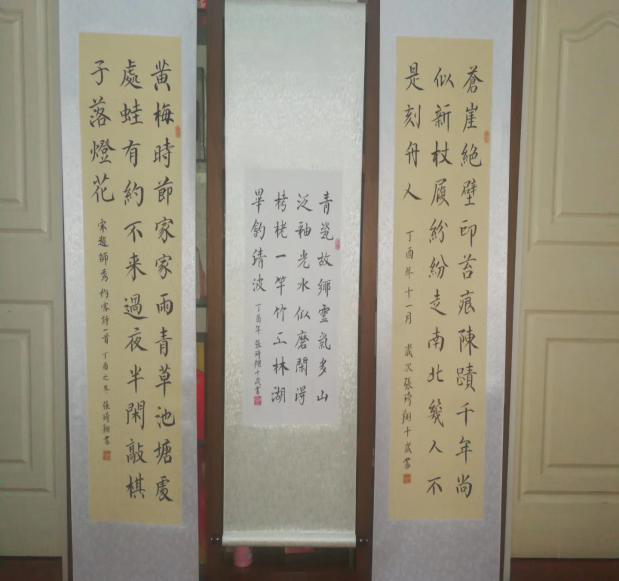 蒼崖絕壁印苔痕陳蹟千年尚
似新杖履紛紛走南北幾人不
是刻舟人
丁酉年十一月 歲次張琦翔十歲書
青瓷故鄉靈氣多山
泛釉光水似磨閑得
栲栳一竿竹工林湖
畢釣清波
丁酉年 張琦翔十歲書
黃梅時節家家雨青草池塘處
處蛙有約不来過夜半閑敲棋
子落燈花
宋趙師秀 約客詩一首 丁酉之冬 張琦翔書